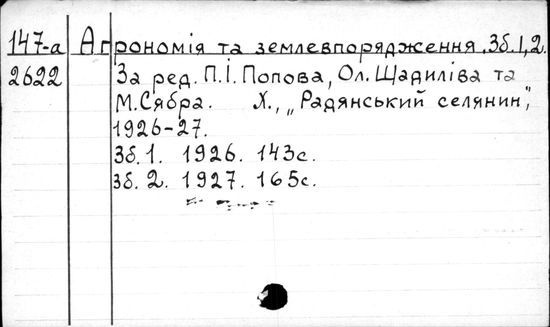 147-а Агрономія та землевпорядження. Зб. 1, 2.
2622 За ред. П.І. Попова, Ол. Щадиліва та
М. Сябра. Х., „Радянський селянин",
1926-27.
Зб. 1. 1926. 143с.
Зб. 2. 1927. 165с.